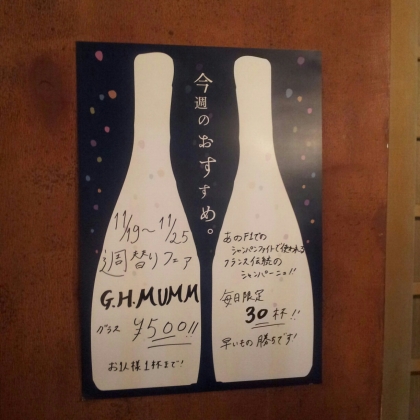 今週のおすすめ。
11/19〜11/25
週替りフェア
G.H.MUMM
グラス ¥500!!
お1人様1杯まで!
あのF1での
シャンパンファイトで使われる
フランス伝統の
シャンパーニュ!!
毎日限定
30杯!!
早いもの勝ちです!